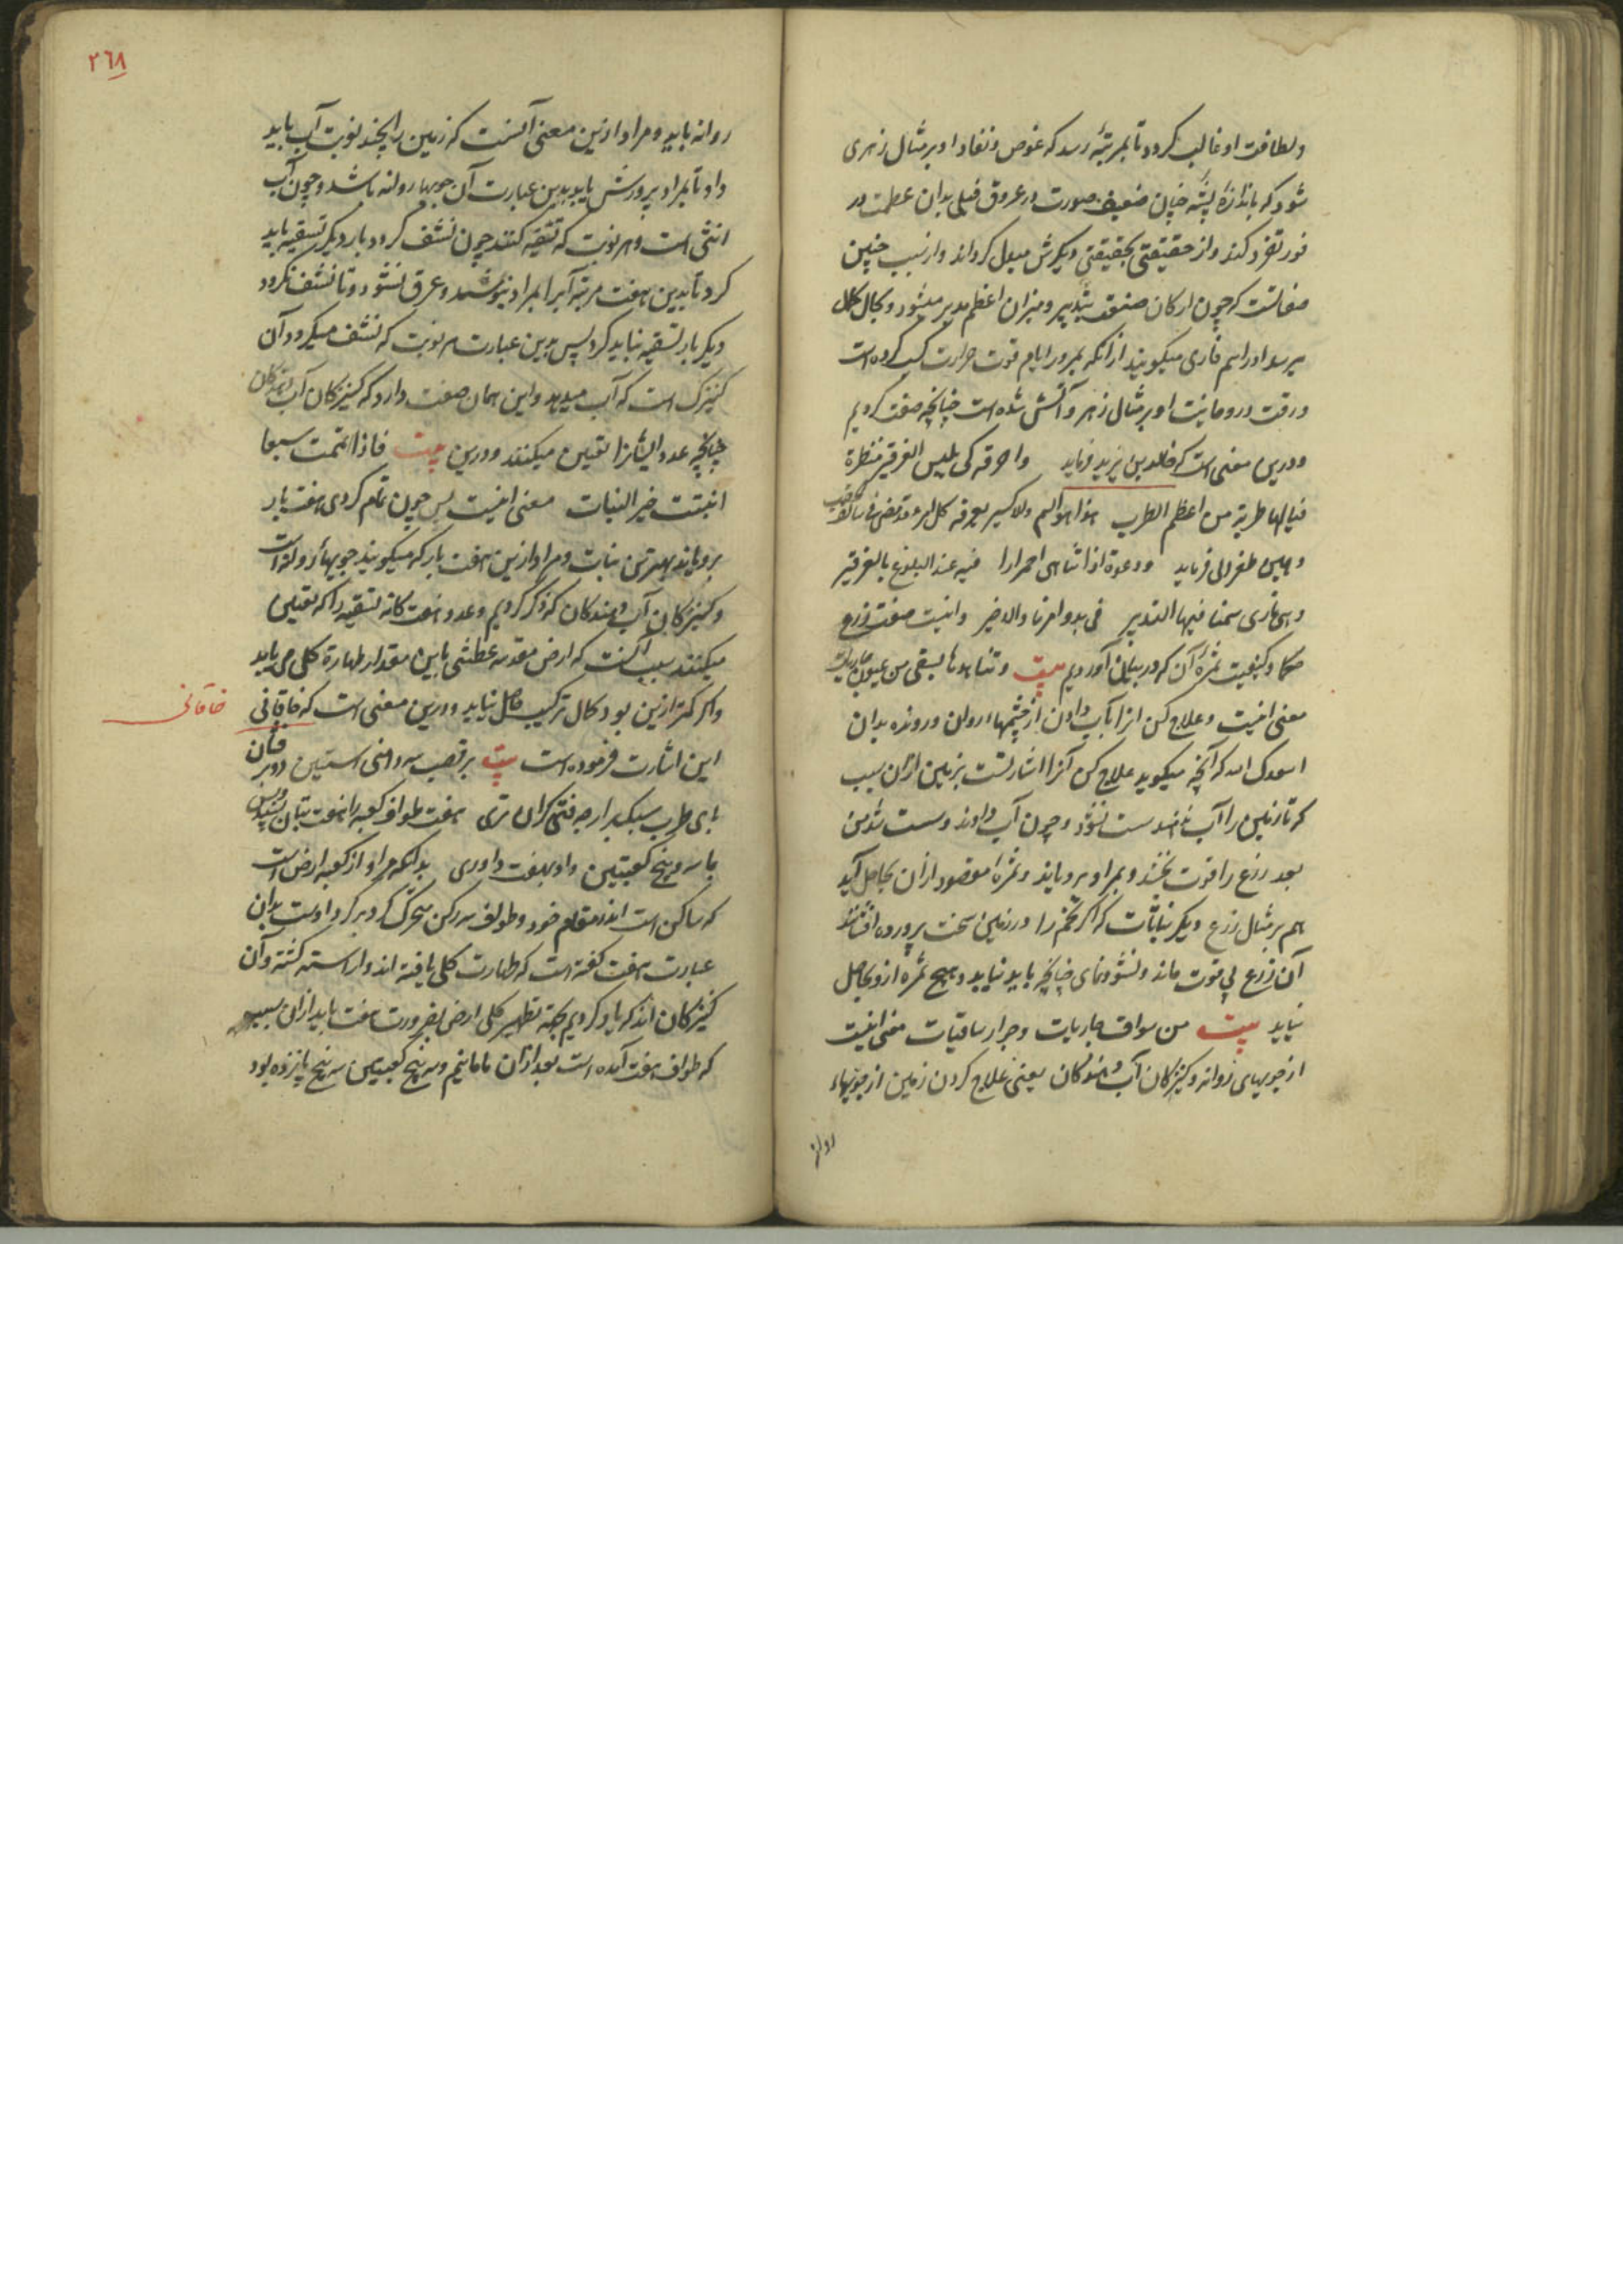 ولطافت او غالب گردد تا بمرتبهٔ رسد که غوص و نفاذ او بر مثال زهری
شود که باندازهٔ پشه چنان ضعیف صورت در عروق فیلی بدان عظمت در
فور تفرد کند واز حقیقتی بحقیقتی دیگرش مبدل کرداند واز سبب چنین
که چون ارکان صنعت بتدبیر ومیزان اعظم مدبر میشود وبکمال کل
میرسد او را سم ناری میکویند از آنکه بمرور ایام قوت حرارت کسب کرده است
ورقت وروحانیت او بر مثال زهر وآتش شده است چنانچه صفت کردیم
ودرین معنی است که خالد بن یزید فرماید واحرقه کی یلبس الفرفیر منظرة
فیالها طربة من اعظم الطرب هذا هو السم والاکسیر یعرفه کل
وهمین طغرائی فرماید ودعوة اذا تناهی احمرارا فیه عند البلوغ بالفرفیر
وهی ناری سمنا فیها التدبیر فی بدو امرنا والاخیر واینست صفت زرع
حکما وکیفیت ثمرهٔ آن که در بیان آوردیم بیت وتناهدنا بسقی من عیون جاریات
معنی اینست وعلاج کن انرا بآب دادن از چشمهاء روان ورونده بدان
اسعدک الله که آنچه میکوید علاج کن آنرا اشارتست بزمین ازان سبب
که تا زمین را آب ندهند سست نشود وچون آب دادند وسست شد من
بعد زرع را قوت بخشد وبمراد برویاند وثمرهٔ مقصود ازان بحاصل آید
هم بر مثال زرع دیکر نباتات که اکر تخم را در زمین سخت پرورده افشانند
آن زرع بی قوت ماند ونشو ونمای چنانچه باید نیابد وهیچ ثمره ازو بحاصل
نیاید بیت من سواق جاریات وجوار ساقیات معنی اینست
از جویهای روانه وکنیزکان آب دهندکان یعنی علاج کردن زمین از جویهاء
روانه
٢٦٨
روانه باید ومراد ازین معنی آنست که زمین را بچند نوبت آب باید
داد تا بمراد پرورش یابد بدین عبارت آن جویها روانه باشد وچون آب
انثی است وهر نوبت که تسقیه کنند چون نشف کردد بار دیکر تسقیه باید
کرد تا بدین هفت مرتبه آبرا بمراد بنوشد وغرق نشود وتا نشف نکردد
دیکر بار تسقیه نباید کرد پس بدین عبارت هر نوبت که نشف میکردد آن
کنیزک است که آب میدهد واین همان صفت دارد که کنیزکان آب دهندکان
چنانچه عدد ایشانرا تعیین میکنند ودرین بیت فاذا تمت سبعا
انبتت خیر النبات معنی اینست پس چون تمام کردی هفت بار
برویاند بهترین نبات ومراد ازین هفت بار که میکویند جویهاء روانه است
وکنیزکان آب دهندکان که ذکر کردیم وعدد هفت کانه تسقیه را که تعیین
میکنند سبب آنست که ارض مقدسه عطشی باین مقدار طهارة کلی می یابد
واکر کمتر ازین بود کمال ترکیب حاصل نیاید ودرین معنی است که خاقانی
خاقانی
این اشارت فرموده است بیت برقصب سه دامنی آستین دو بر فشان
پای طرب سبک برآر چه فتی کران تری هفت طواف کعبه را هفت تنان بسنده وبس
ما سه وپنج کعبتین داو بهفت داوری بدانکه مراد از کعبه ارض است
که ساکن است اندر مقام خود وطواف سه رکن متحرک کردبر کرد اوست بدان
عبارت هفت کفته است که طهارت کلی یافته اند واراسته کشته وآن
کنیزکان اند که یاد کردیم بجهة تطهیر کلی ارض بضرورت هفت باید ازان سبب
که طواف هفت آمده است بعد ازان ما مانیم وسه پنج کعبتین سه پنج پانزده بود